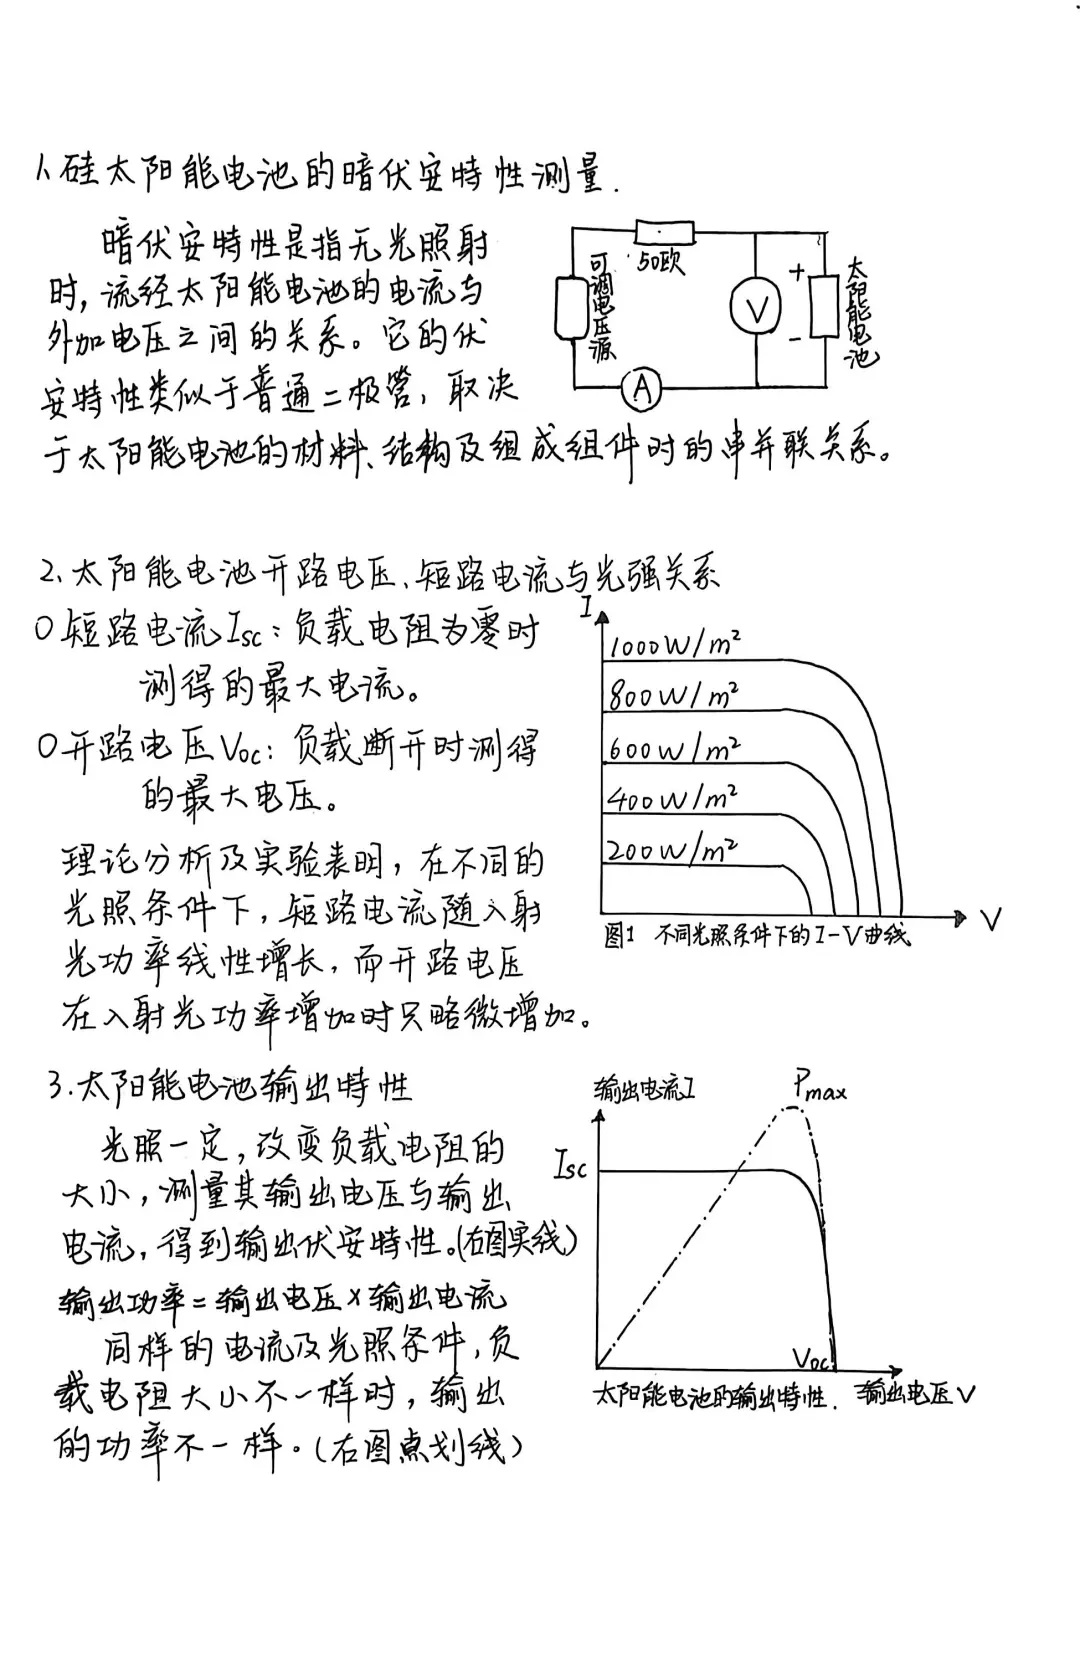 1、硅太阳能电池的暗伏安特性测量.
暗伏安特性是指无光照射
时，流经太阳能电池的电流与
外加电压之间的关系。它的伏
安特性类似于普通二极管，取决
于太阳能电池的材料、结构及组成组件时的串并联关系。
可调电压源
50欧
V
A
+
-
太阳能电池
2、太阳能电池开路电压、短路电流与光强关系
○短路电流Isc：负载电阻为零时
测得的最大电流。
○开路电压Voc：负载断开时测得
的最大电压。
理论分析及实验表明，在不同的
光照条件下，短路电流随入射
光功率线性增长，而开路电压
在入射光功率增加时只略微增加。
I
1000W/m²
800W/m²
600W/m²
400W/m²
200W/m²
V
图1 不同光照条件下的I-V曲线
3.太阳能电池输出特性
光照一定，改变负载电阻的
大小，测量其输出电压与输出
电流，得到输出伏安特性。(右图实线)
输出功率=输出电压×输出电流
同样的电流及光照条件，负
载电阻大小不一样时，输出
的功率不一样。(右图点划线)
输出电流I
Pmax
Isc
Voc
太阳能电池的输出特性. 输出电压V